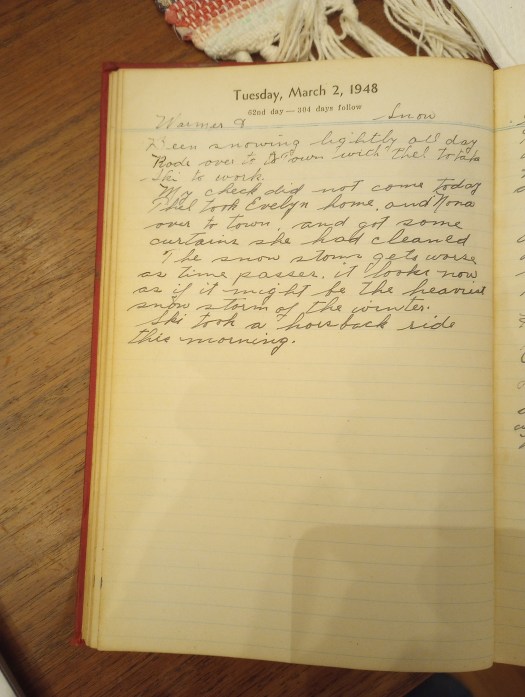 Tuesday, March 2, 1948
62nd day — 304 days follow
Warmer & Snow
Been snowing lightly all day
Rode over to town with Thel to take
Ski to work.
My check did not come today
Thel took Evelyn home, and Nona
over to town, and got some
curtains she had cleaned
The snow storm gets worse
as time passes, it looks now
as if it might be the heaviest
snow storm of the winter.
Ski took a horsback ride
this morning.